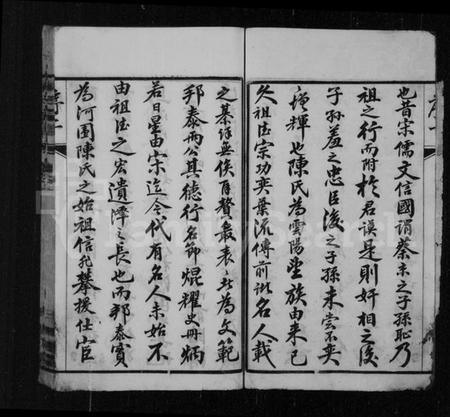 也昔宋儒文信國謂蔡京之子孫恥乃
祖之行而附於君謨是則奸相之後
子孫羞之忠臣後之子孫未嘗不奕
奕輝也陳氏為雲陽望族由來已
久祖德宗功奕葉流傳前訓名人載
之綦詳無俟再贅最表之為文範
邦泰兩公其德行名節焜耀史冊炳
若日星由宋迄今代有名人未始不
由祖德之宏遺澤之長也而邦泰實
為河圍陳氏之始祖信孔攀援仕宦